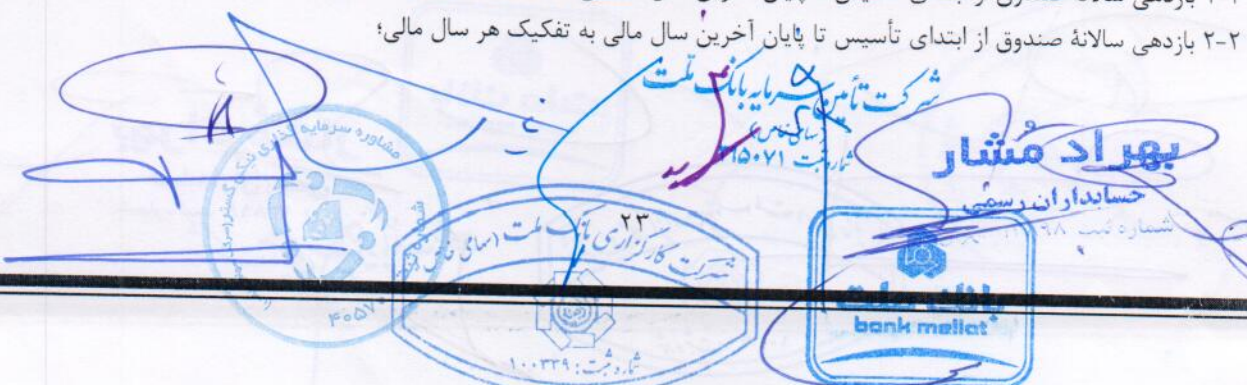 ۲-۲ بازدهی سالانهٔ صندوق از ابتدای تأسیس تا پایان آخرین سال مالی به تفکیک هر سال مالی؛
شرکت تأمین سرمایه بانک ملت
(سهامی خاص)
شماره ثبت
بهراد مشار
حسابداران رسمی
شماره ثبت
مشاوره سرمایه گذاری نیکی گستر
۲۳
شرکت کارگزاری بانک ملت (سهامی خاص)
شماره ثبت: ۱۰۰۳۳۹
بانک ملت
bank mellat